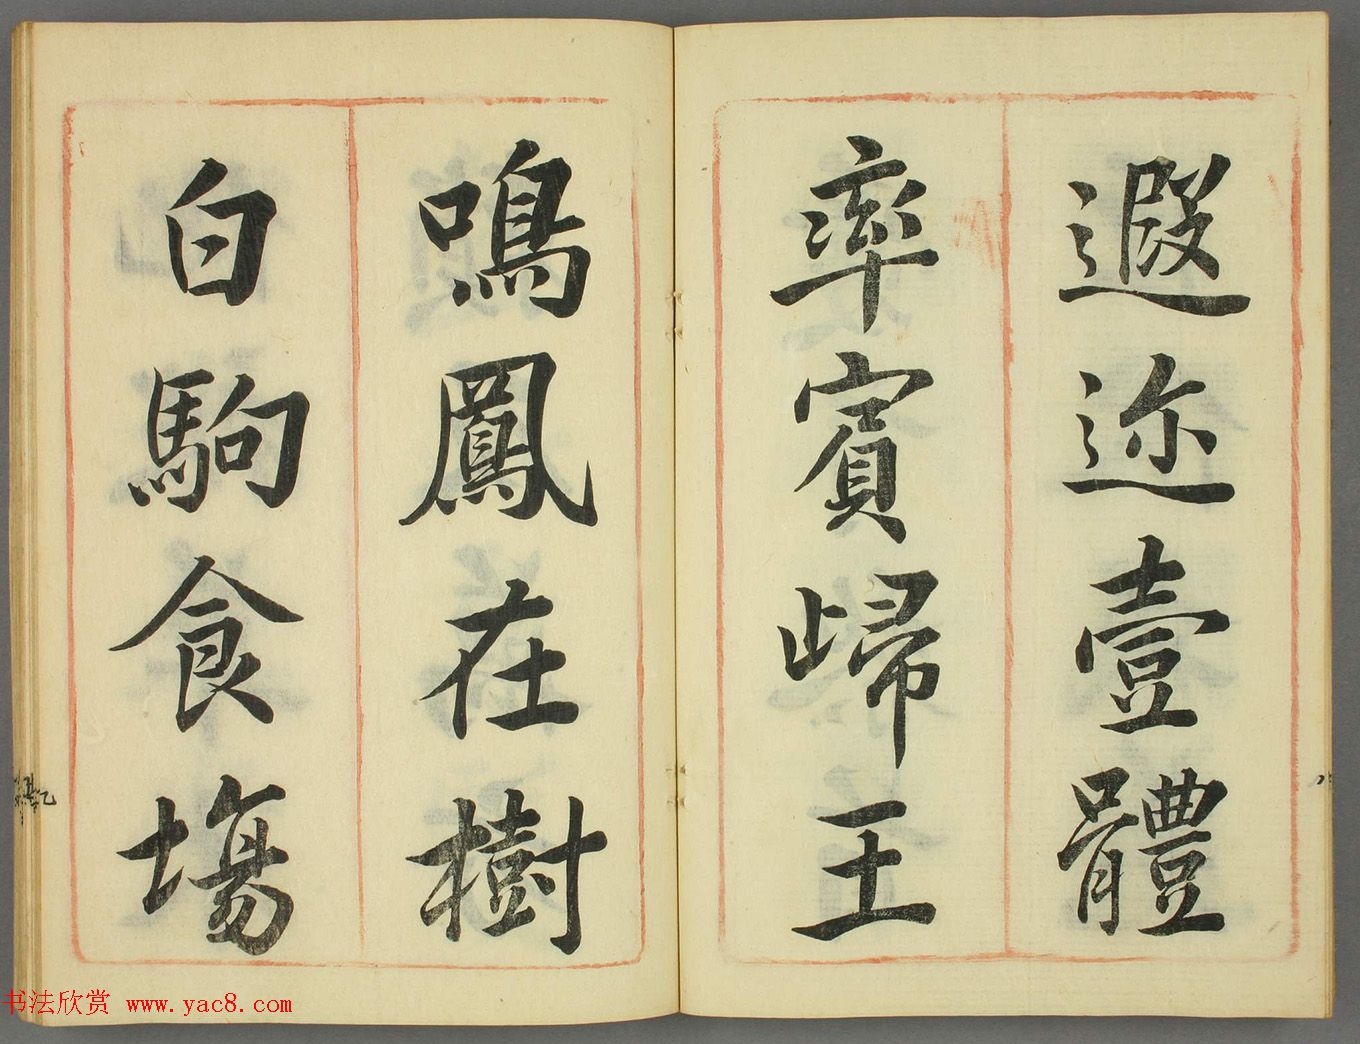 遐迩壹體
率賓歸王
鳴鳳在樹
白駒食場
书法欣赏 www.yac8.com